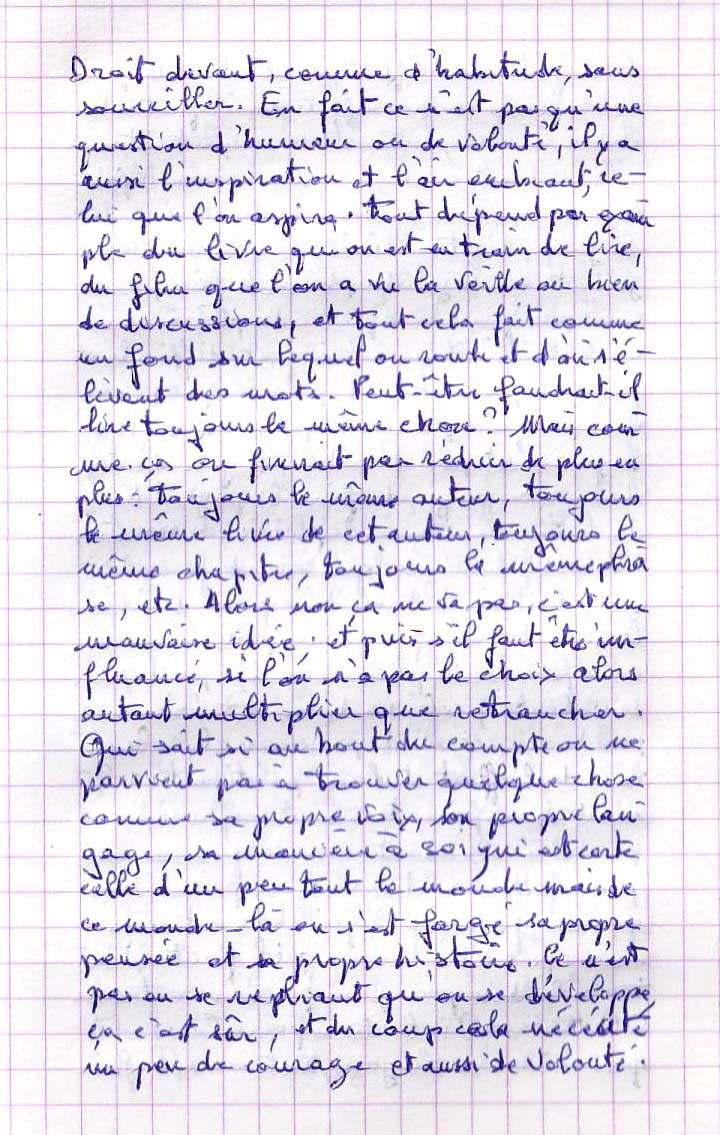 Droit devant, comme d'habitude, sans
sourciller. En fait ce n'est pas qu'une
question d'humeur ou de volonté, il y a
aussi l'inspiration et l'air ambiant, ce-
lui que l'on aspire. Tout dépend par exem
ple du livre qu'on est en train de lire,
du film que l'on a vu la veille ou bien
de discussions, et tout cela fait comme
un fond sur lequel on roule et d'où s'é-
lèvent des mots. Peut-être faudrait-il
lire toujours la même chose? Mais com
me ça on finirait par réduire de plus en
plus: toujours le même auteur, toujours
le même livre de cet auteur, toujours le
même chapitre, toujours la même phra
se, etc. Alors non ça ne va pas, c'est une
mauvaise idée, et puis s'il faut être in-
fluancé, si l'on n'a pas le choix alors
autant multiplier que retrancher.
Qui sait si au bout du compte on ne
parvient pas à trouver quelque chose
comme sa propre voix, son propre lan
gage, sa manière à soi qui est certe
celle d'un peu tout le monde mais de
ce monde-là on s'est forgé sa propre
pensée et sa propre histoire. Ce n'est
pas en se repliant qu'on se développe,
ça c'est sûr, et du coup cela nécésite
un peu de courage et aussi de volonté.